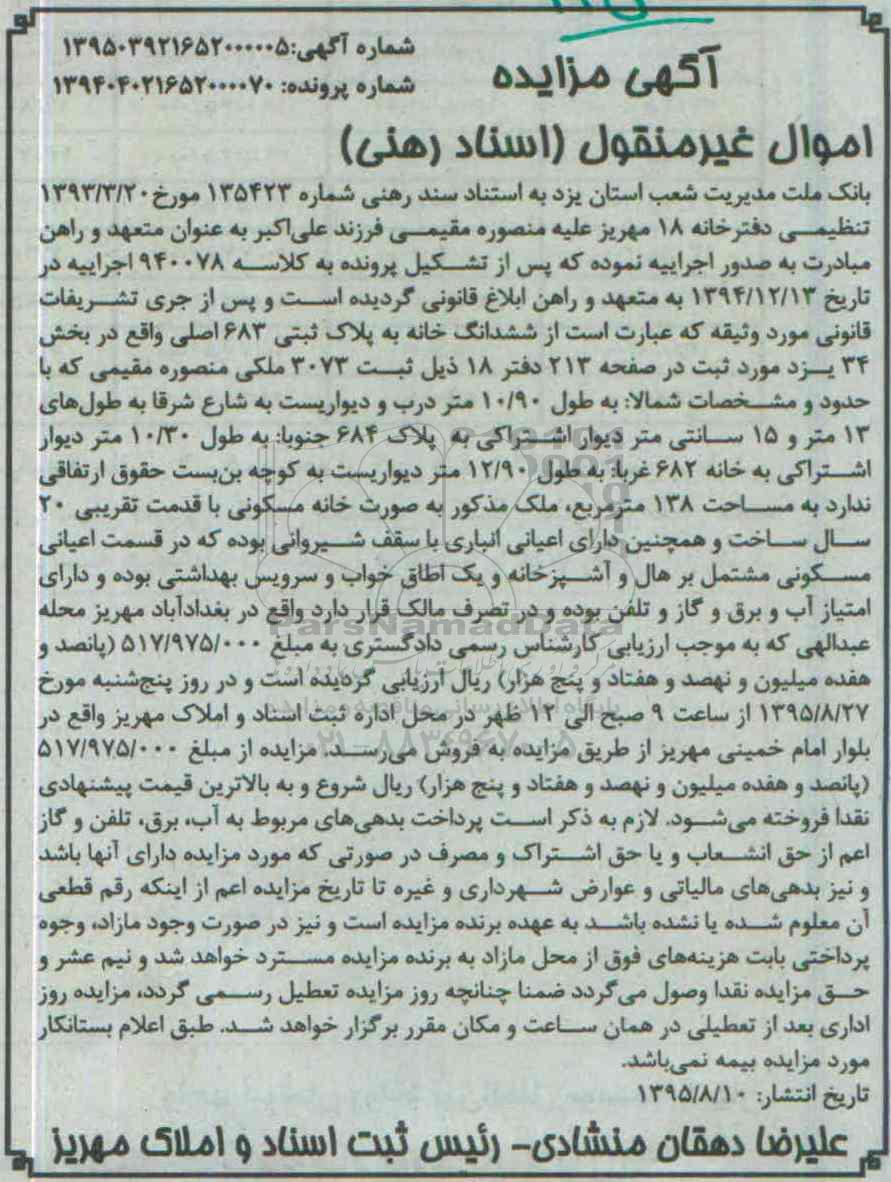 شماره آگهی:۱۳۹۵۰۳۹۲۱۶۵۲۰۰۰۰۰۵
شماره پرونده: ۱۳۹۴۰۴۰۲۱۶۵۲۰۰۰۰۷۰
آگهی مزایده
اموال غیرمنقول (اسناد رهنی)
بانک ملت مدیریت شعب استان یزد به استناد سند رهنی شماره ۱۳۵۴۲۳ مورخ ۱۳۹۳/۳/۲۰
تنظیمی دفترخانه ۱۸ مهریز علیه منصوره مقیمی فرزند علی‌اکبر به عنوان متعهد و راهن
مبادرت به صدور اجراییه نموده که پس از تشکیل پرونده به کلاسه ۹۴۰۰۷۸ اجراییه در
تاریخ ۱۳۹۴/۱۲/۱۳ به متعهد و راهن ابلاغ قانونی گردیده است و پس از جری تشریفات
قانونی مورد وثیقه که عبارت است از ششدانگ خانه به پلاک ثبتی ۶۸۳ اصلی واقع در بخش
۳۴ یزد مورد ثبت در صفحه ۲۱۳ دفتر ۱۸ ذیل ثبت ۳۰۷۳ ملکی منصوره مقیمی که با
حدود و مشخصات شمالا: به طول ۱۰/۹۰ متر درب و دیواریست به شارع شرقا به طول‌های
۱۳ متر و ۱۵ سانتی متر دیوار اشتراکی به پلاک ۶۸۴ جنوبا: به طول ۱۰/۳۰ متر دیوار
اشتراکی به خانه ۶۸۲ غربا: به طول ۱۲/۹۰ متر دیواریست به کوچه بن‌بست حقوق ارتفاقی
ندارد به مساحت ۱۳۸ مترمربع، ملک مذکور به صورت خانه مسکونی با قدمت تقریبی ۲۰
سال ساخت و همچنین دارای اعیانی انباری با سقف شیروانی بوده که در قسمت اعیانی
مسکونی مشتمل بر هال و آشپزخانه و یک اطاق خواب و سرویس بهداشتی بوده و دارای
امتیاز آب و برق و گاز و تلفن بوده و در تصرف مالک قرار دارد واقع در بغدادآباد مهریز محله
عبدالهی که به موجب ارزیابی کارشناس رسمی دادگستری به مبلغ ۵۱۷/۹۷۵/۰۰۰ (پانصد و
هفده میلیون و نهصد و هفتاد و پنج هزار) ریال ارزیابی گردیده است و در روز پنج‌شنبه مورخ
۱۳۹۵/۸/۲۷ از ساعت ۹ صبح الی ۱۲ ظهر در محل اداره ثبت اسناد و املاک مهریز واقع در
بلوار امام خمینی مهریز از طریق مزایده به فروش می‌رسد. مزایده از مبلغ ۵۱۷/۹۷۵/۰۰۰
(پانصد و هفده میلیون و نهصد و هفتاد و پنج هزار) ریال شروع و به بالاترین قیمت پیشنهادی
نقدا فروخته می‌شود. لازم به ذکر است پرداخت بدهی‌های مربوط به آب، برق، تلفن و گاز
اعم از حق انشعاب و یا حق اشتراک و مصرف در صورتی که مورد مزایده دارای آنها باشد
و نیز بدهی‌های مالیاتی و عوارض شهرداری و غیره تا تاریخ مزایده اعم از اینکه رقم قطعی
آن معلوم شده یا نشده باشد به عهده برنده مزایده است و نیز در صورت وجود مازاد، وجوه
پرداختی بابت هزینه‌های فوق از محل مازاد به برنده مزایده مسترد خواهد شد و نیم عشر و
حق مزایده نقدا وصول می‌گردد ضمنا چنانچه روز مزایده تعطیل رسمی گردد، مزایده روز
اداری بعد از تعطیلی در همان ساعت و مکان مقرر برگزار خواهد شد. طبق اعلام بستانکار
مورد مزایده بیمه نمی‌باشد.
تاریخ انتشار: ۱۳۹۵/۸/۱۰
علیرضا دهقان منشادی- رئیس ثبت اسناد و املاک مهریز
ParsNamadData